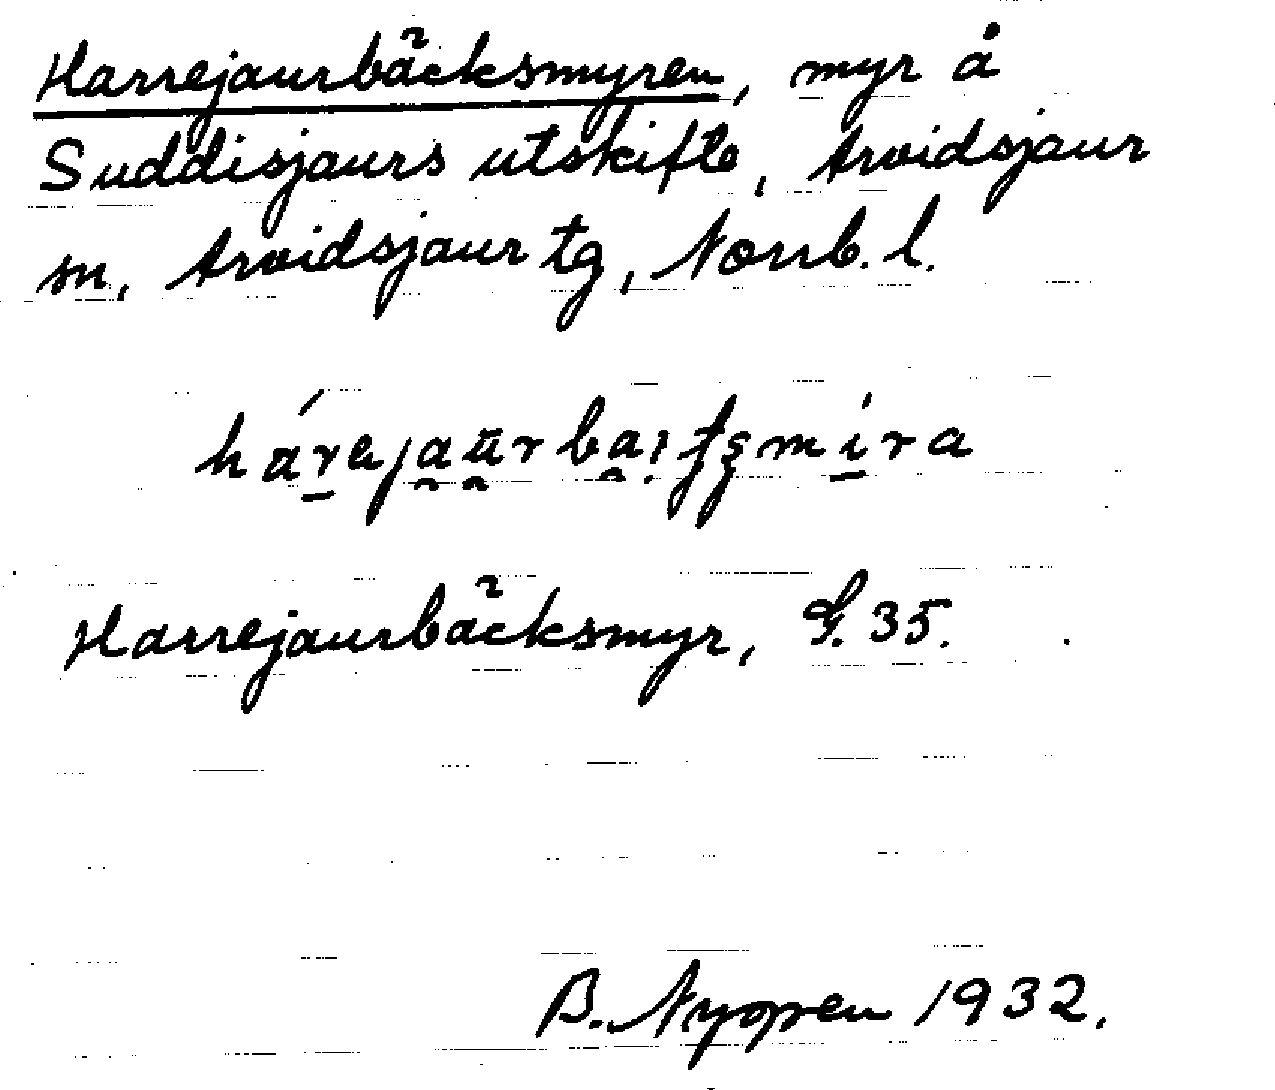 Harrejaurbäcksmyren, myr å
Suddisjaurs utskifte, Arvidsjaur
sn, Arvidsjaur tg, Norrb. l.
Harrejaurbäcksmyr, G. 35.
B. Nygren 1932.